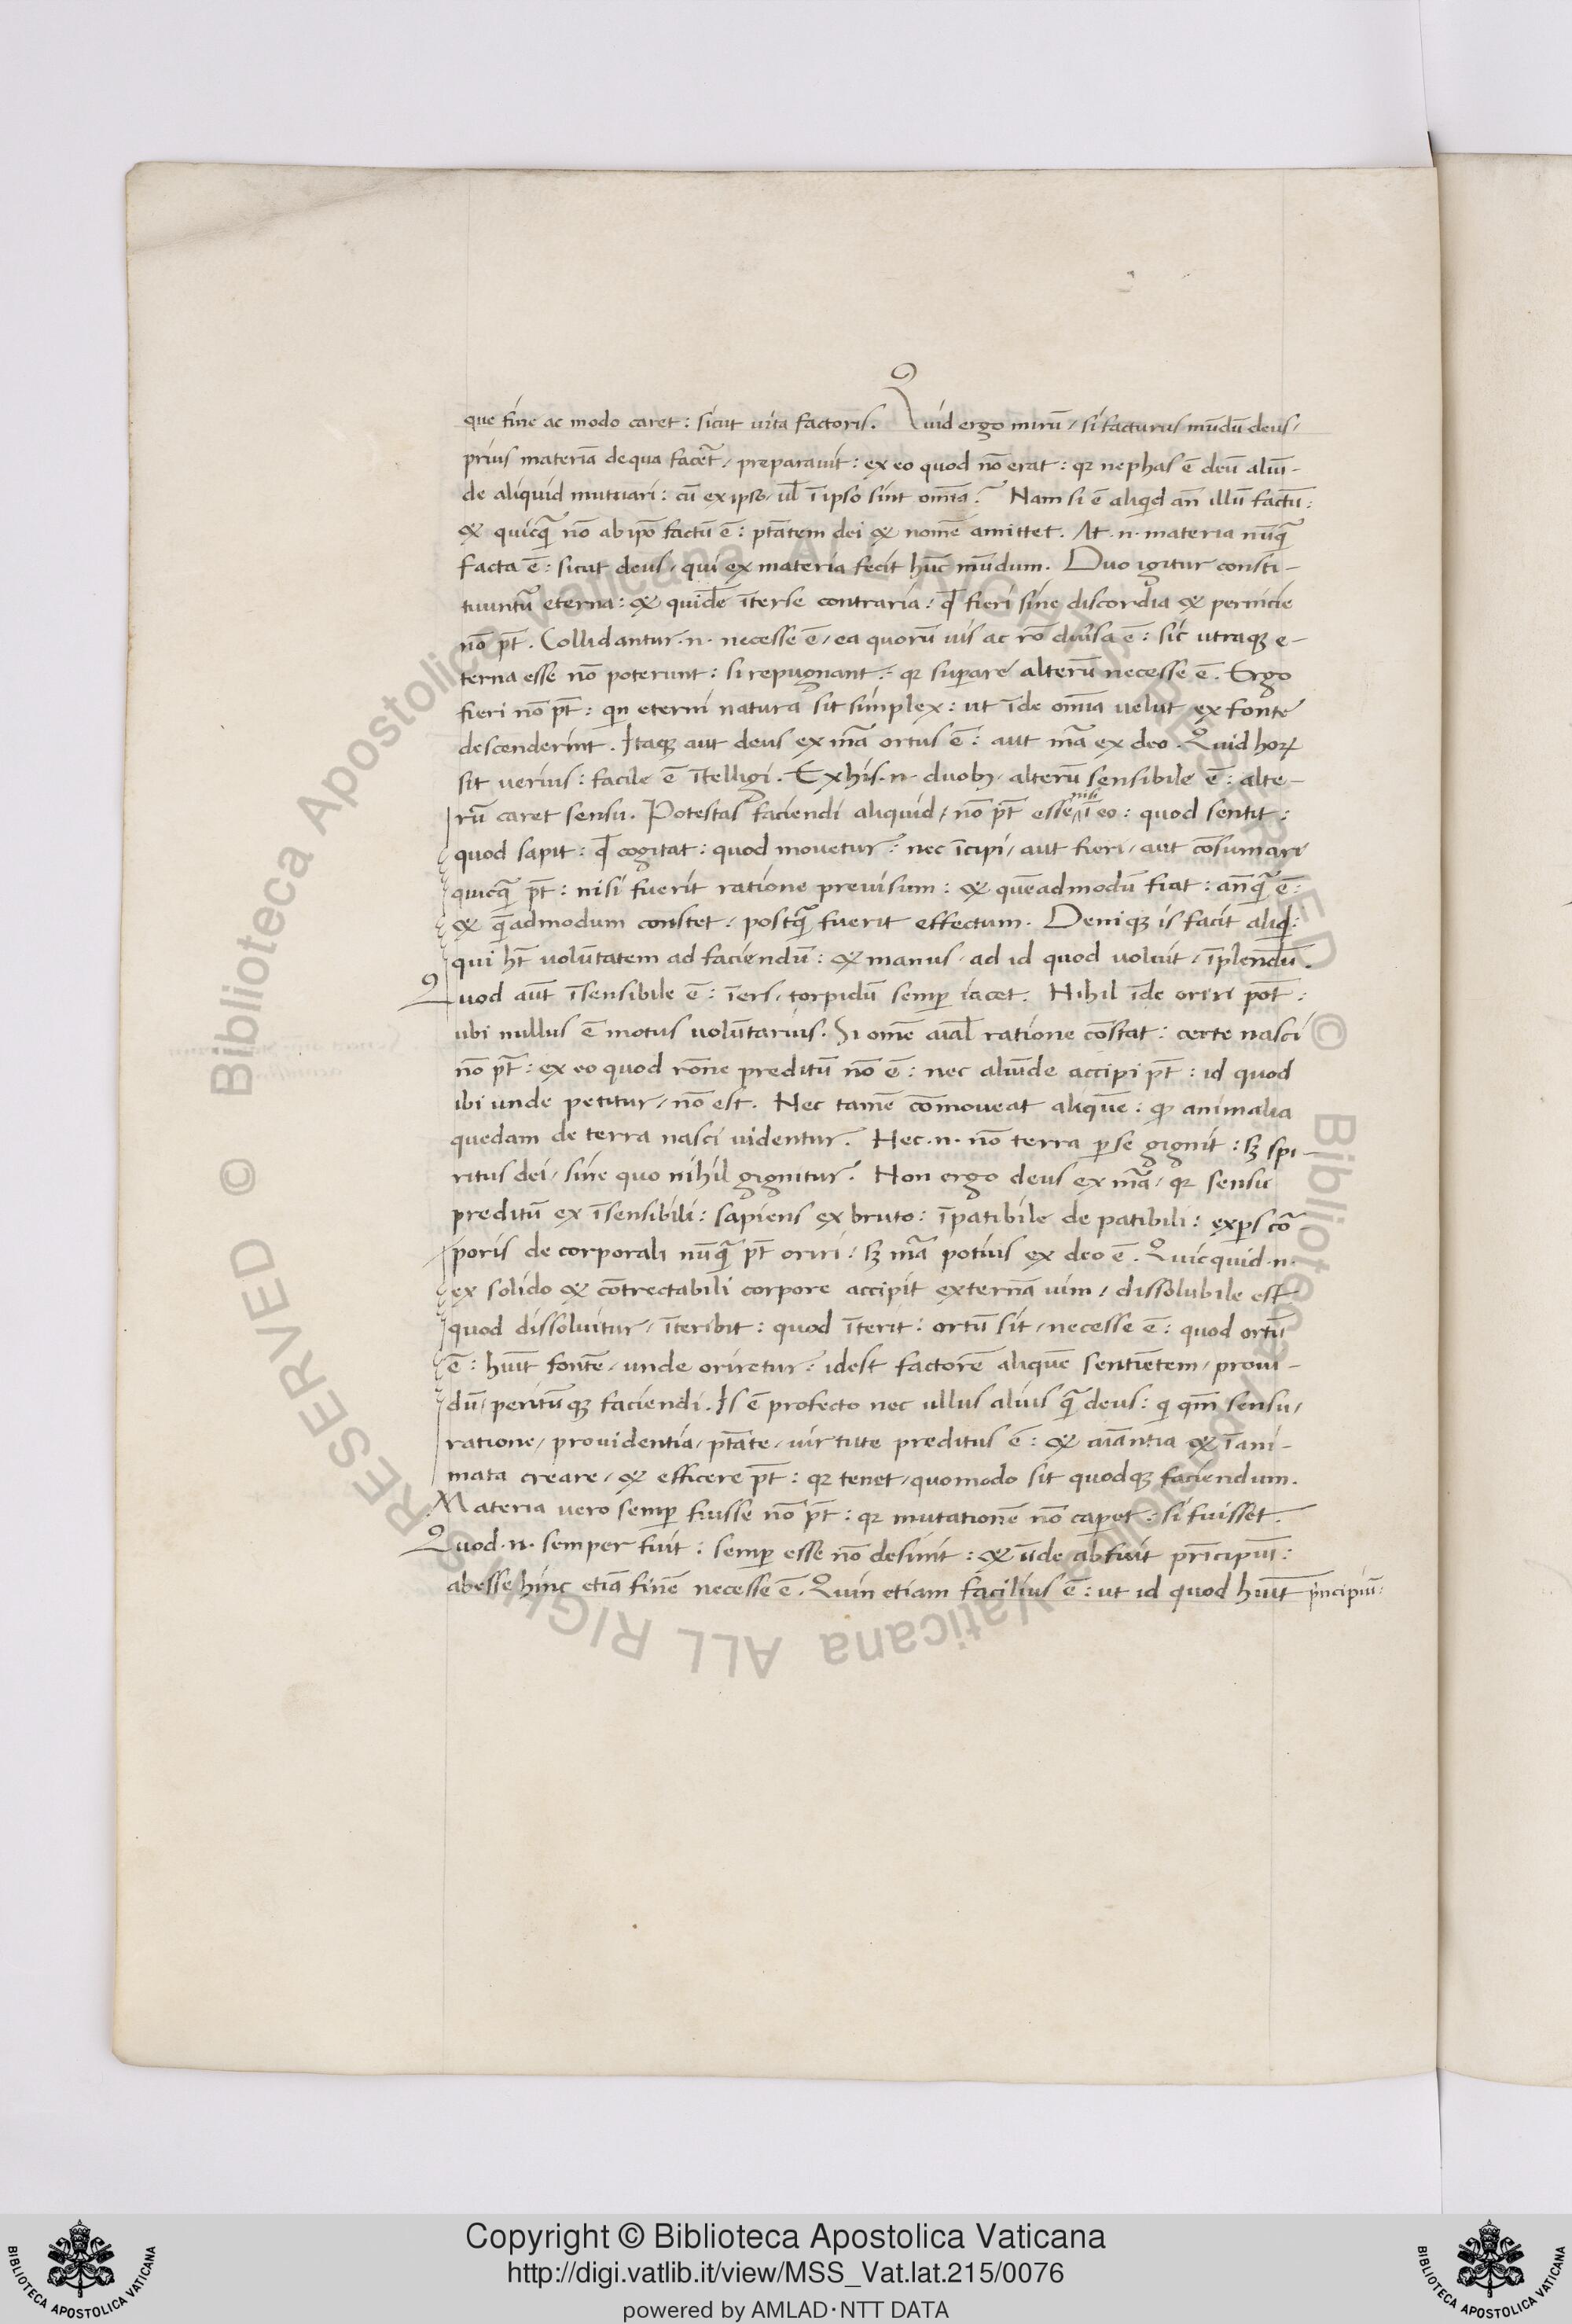 que fine ac modo caret: sicut uita factoris. Quid ergo mirū / si facturus mūdū deus /
prius materiā de qua facet̄ / preparauit: ex eo quod nō erat: qꝛ nephas ē deū aliū-
de aliquid mutuari: cū ex ipso / ul̄ ī ipso sint omīa? Nam si ē aliqid an̄ illū factū:
& quicq̄ nō ab ipō factū ē: ptātem dei & nomē amittet. At .n. materia nūq̄
facta ē: sicut deus / qui ex materia fecit hūc mūdum. Duo igitur consti-
tuuntū eterna: & quidē īterse contraria: qd̄ fieri sine discordia & pernicie
nō pt̄. Collidantur .n. necesse ē / ea quorū uis ac rō diuisa ē: sic utraqꝫ e-
terna esse nō poterunt: si repugnant: qꝛ suꝑare alterū necesse ē. Ergo
fieri nō pt̄: qn eterni natura sit simplex: ut īde omīa uelut ex fonte
descenderint. Itaqꝫ aut deus ex mā ortus ē: aut mā ex deo. Quid hoꝝ
sit uerius: facile ē ītelligi. Ex his .n. duobꝫ / alterū sensibile ē: alte-
rū caret sensu. Potestas faciendi aliquid / nō pt̄ esse nisi ī eo: quod sentit:
quod sapit: qd̄ cogitat: quod mouetur: nec īcipi / aut fieri / aut cōsumari
quicq̄ pt̄: nisi fuerit ratione preuisum: & quēadmodū fiat: an̄q̄ ē:
& q̄admodum constet / postq̄ fuerit effectum. Deniqꝫ is facit aliqd:
qui ht̄ volūtatem ad faciendū: & manus / ad id quod voluit / īplendū.
Quod aūt īsensibile ē: īers / torpidū semꝑ iacet. Nihil īde oriri pōt:
ubi nullus ē motus volūtarius. Si omē aial̄ ratione cōstat: certe nasci
nō pt̄: ex eo quod rōne preditū nō ē: nec aliūde accipi pt̄: id quod
ibi unde petitur / nō est. Nec tamē cōmoveat aliquē: ꝙ animalia
quedam de terra nasci videntur. Hec .n. nō terra ꝑ se gignit: sꝫ spi-
ritus dei / sine quo nihil gignitur. Non ergo deus ex mā / qꝛ sensu
preditū ex īsensibili: sapiens ex bruto: īpatibile de patibili: exꝑs cō
poris de corporali nūq̄ pt̄ oriri / sꝫ mā potius ex deo ē. Quicquid .n.
ex solido & cōtrectabili corpore accipit externā uim / dissolubile est
quod dissoluitur / īteribit: quod īterit: ortū sit / necesse ē: quod ortū
ē: huīt fontē / unde oriretur: idest factorē aliquē sentiētem / proui-
dū / peritūqꝫ faciendi. Is ē profecto nec ullus alius q̄ deus: q qm̄ sensu /
ratione / prouidentia / ptāte / uirtute preditus ē: & aīantia & īani-
mata creare / & efficere pt̄: qꝛ tenet / quomodo sit quodqꝫ faciendum.
Materia vero semꝑ fuisse nō pt̄: qꝛ mutationē nō caperet: si fuisset.
Quod .n. semper fuit: semꝑ esse nō desinit: & ūde abfuit prīcipiū:
abesse hinc etiā finē necesse ē. Quin etiam facilius ē: ut id quod huīt prīncipiū:
Copyright © Biblioteca Apostolica Vaticana
http://digi.vatlib.it/view/MSS_Vat.lat.215/0076
powered by AMLAD·NTT DATA